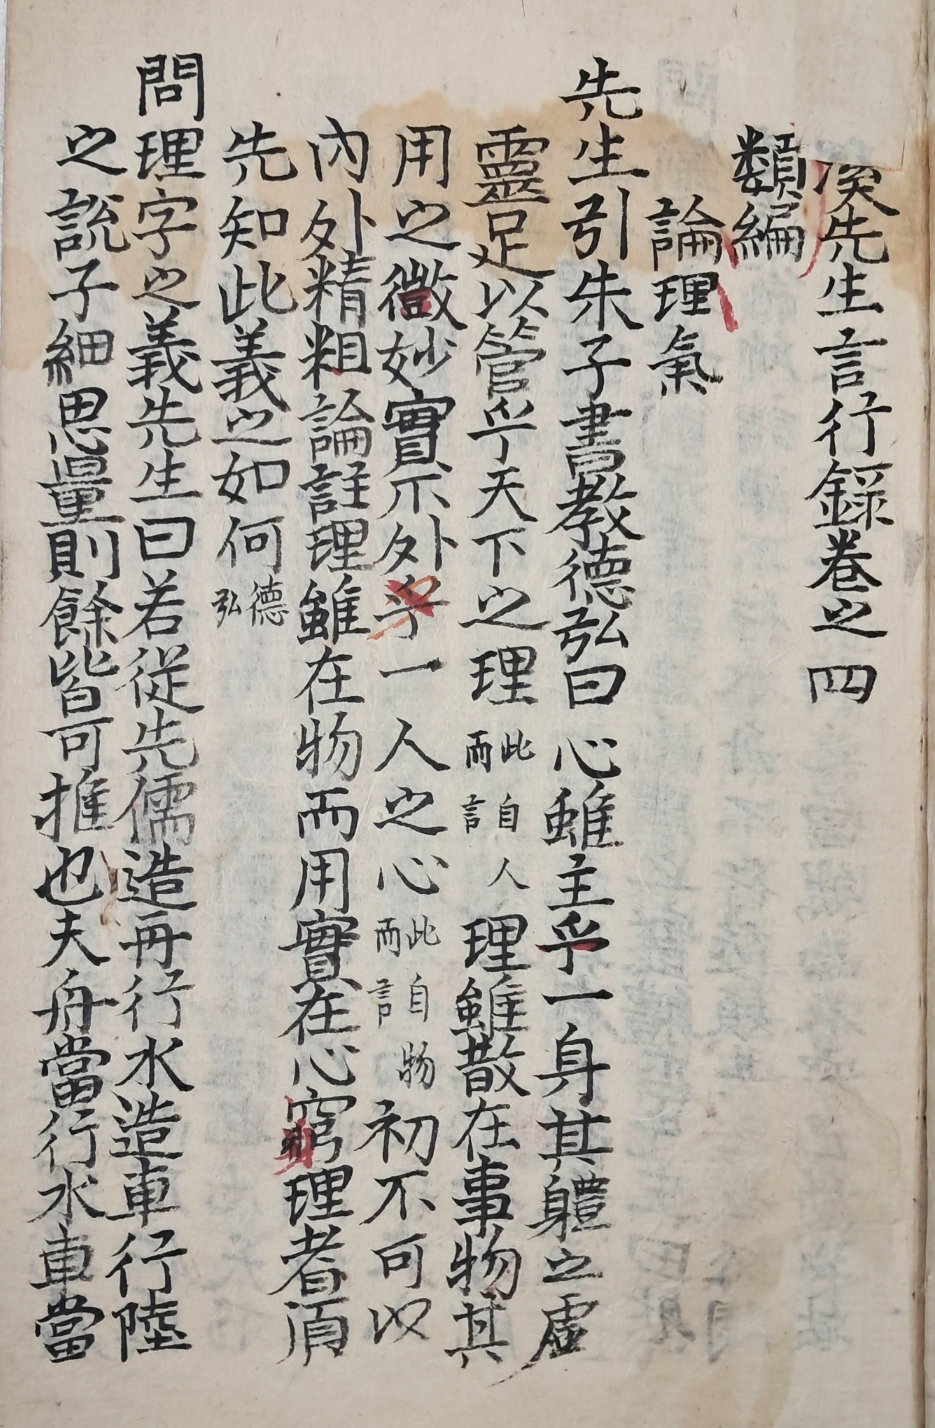 溪先生言行錄卷之四
類編
論理氣
先生引朱子書教德弘曰心雖主乎一身其軆之虛
靈足以管乎天下之理此自人而言理雖散在事物其
用之微妙實不外乎一人之心此自物而言初不可以
內外精粗論註理雖在物而用實在心窮理者須
先知此義之如何德弘
問理字之義先生曰若從先儒造舟行水造車行陸
之說子細思量則餘皆可推也夫舟當行水車當